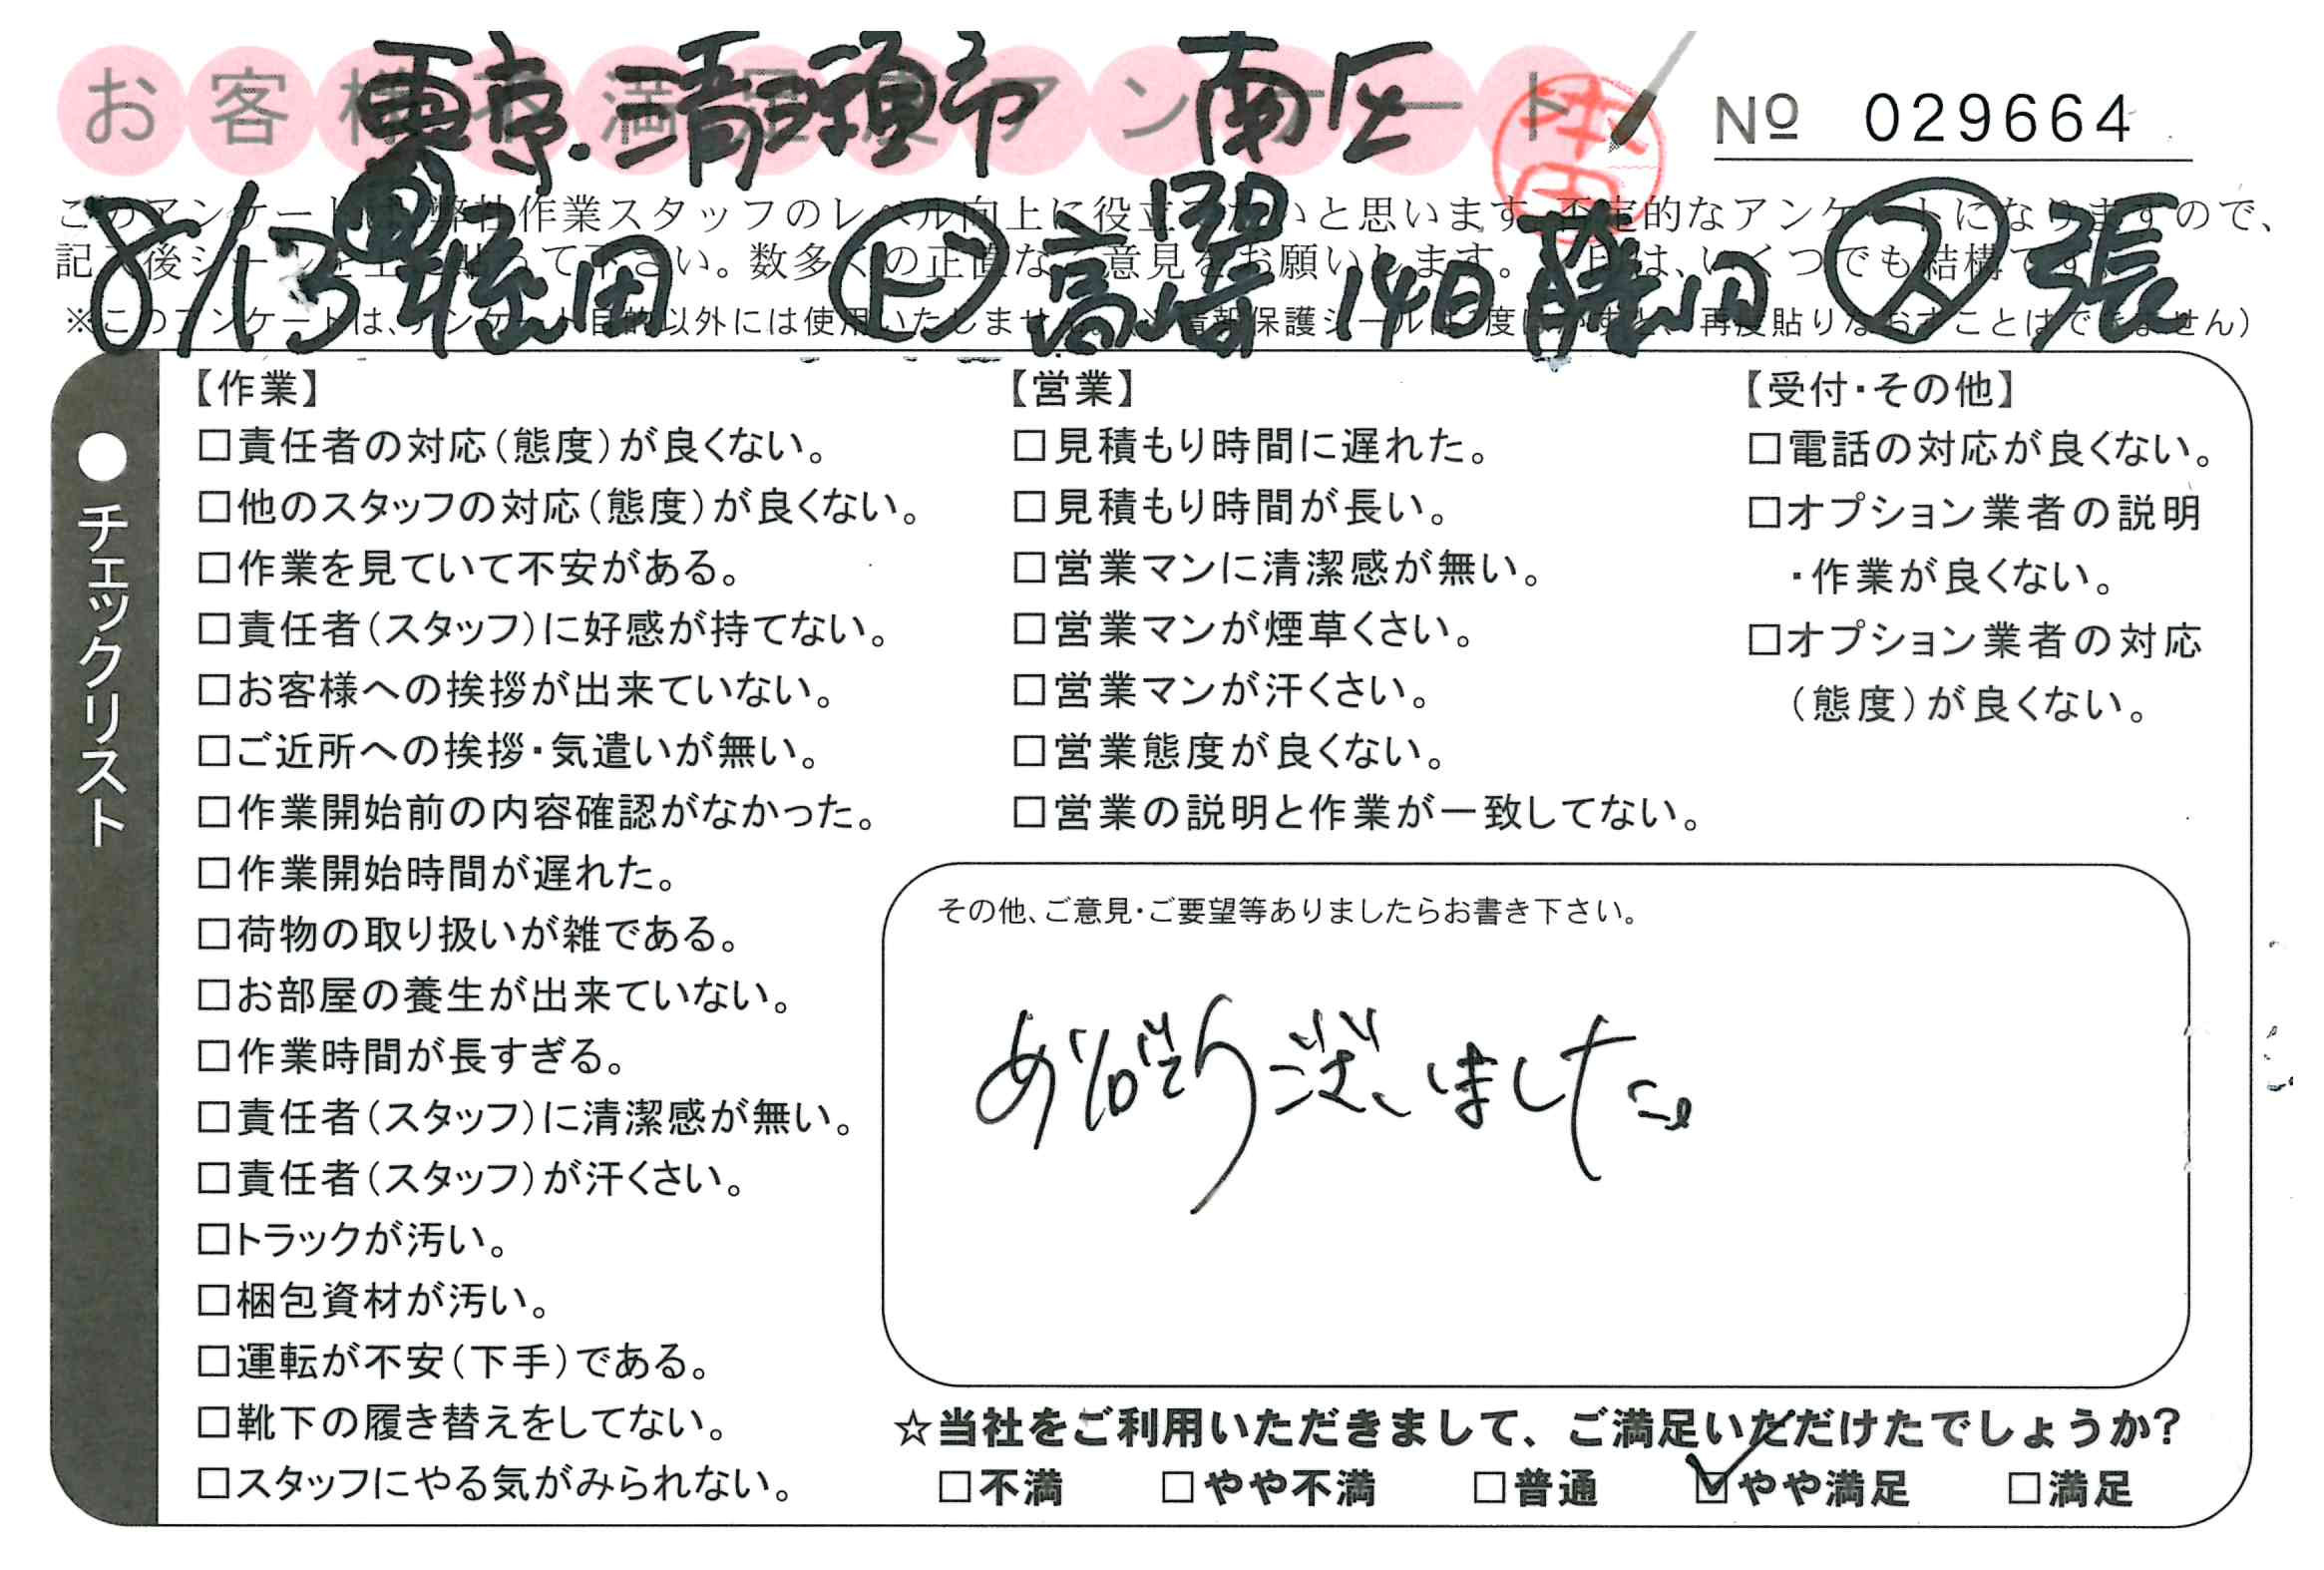 お客様不満足度アンケート
東京.清瀬市 南区
本田
№ 029664
このアンケートは、弊社作業スタッフのレベル向上に役立てたいと思います。不定的なアンケートになりますので、
記入後シールを上から貼って下さい。数多くの正直なご意見をお願いします。
8/13 堀田 ド 高 14日 藤田 ス 張
※このアンケートは、アンケート目的以外には使用いたしません。
再度貼りなおすことはできません)
●チェックリスト
【作業】
□責任者の対応(態度)が良くない。
□他のスタッフの対応(態度)が良くない。
□作業を見ていて不安がある。
□責任者(スタッフ)に好感が持てない。
□お客様への挨拶が出来ていない。
□ご近所への挨拶・気遣いが無い。
□作業開始前の内容確認がなかった。
□作業開始時間が遅れた。
□荷物の取り扱いが雑である。
□お部屋の養生が出来ていない。
□作業時間が長すぎる。
□責任者(スタッフ)に清潔感が無い。
□責任者(スタッフ)が汗くさい。
□トラックが汚い。
□梱包資材が汚い。
□運転が不安(下手)である。
□靴下の履き替えをしてない。
□スタッフにやる気がみられない。
【営業】
□見積もり時間に遅れた。
□見積もり時間が長い。
□営業マンに清潔感が無い。
□営業マンが煙草くさい。
□営業マンが汗くさい。
□営業態度が良くない。
□営業の説明と作業が一致してない。
【受付・その他】
□電話の対応が良くない。
□オプション業者の説明
・作業が良くない。
□オプション業者の対応
(態度)が良くない。
その他、ご意見・ご要望等ありましたらお書き下さい。
あり難うございました。
☆当社をご利用いただきまして、ご満足いただけたでしょうか?
□不満 □やや不満 □普通 ☑やや満足 □満足